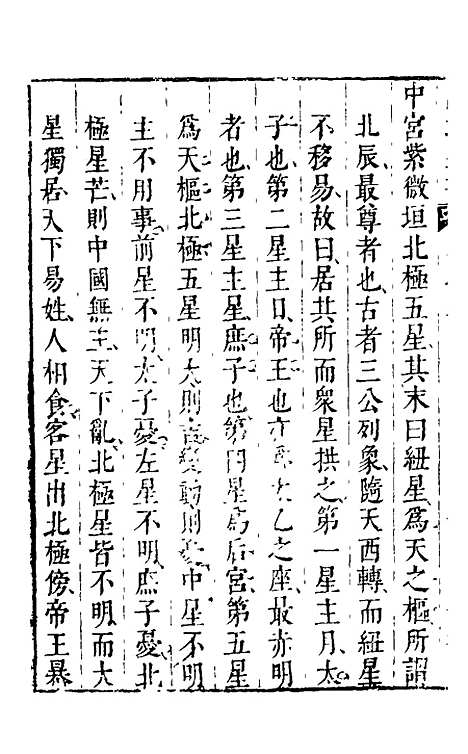 中宮紫微垣北極五星其末曰紐星為天之樞所謂
北辰最尊者也古者三公列象隨天西轉而紐星
不移易故曰居其所而衆星拱之第一星主月太
子也第二星主日帝王也亦太乙之座最赤明
者也第三星主星庶子也第四星為后宮第五星
為天樞北極五星明大則吉變動則憂中星不明
主不用事前星不明太子憂左星不明庶子憂北
極星芒則中國無主天下亂北極星皆不明而大
星獨居天下易姓人相食客星出北極傍帝王暴